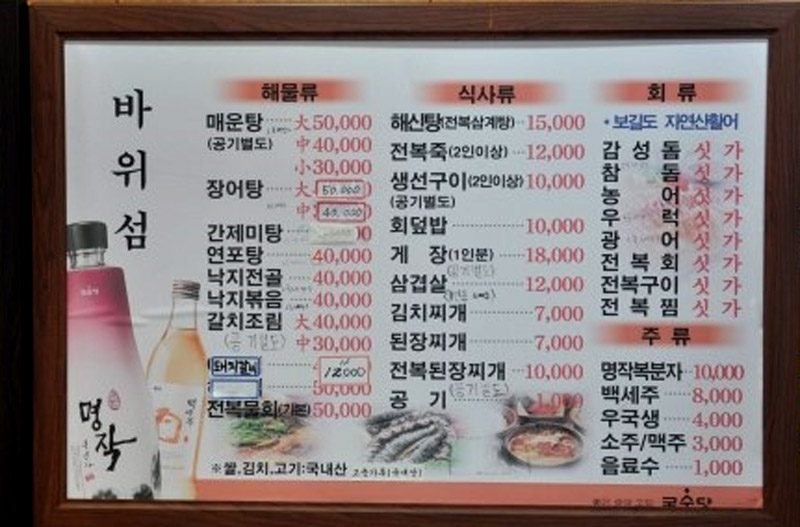 바위섬
해물류
매운탕 大 50,000
(공기별도) 中 40,000
小 30,000
장어탕 大 50,000
中 40,000
간제미탕
연포탕 40,000
낙지전골 40,000
낙지볶음 40,000
갈치조림 大 40,000
(공기별도) 中 30,000
돼지갈비 12,000
전복물회(기본) 50,000
※쌀,김치,고기:국내산 고춧가루(국내산)
식사류
해신탕(전복삼계탕) 15,000
전복죽(2인이상) 12,000
생선구이(2인이상) 10,000
(공기별도)
회덮밥 10,000
게 장(1인분) 18,000
(공기별도)
삼겹살 12,000
김치찌개 7,000
된장찌개 7,000
전복된장찌개 10,000
(공기별도)
공 기 1,000
회 류
• 보길도 자연산활어
감성돔 싯가
참 돔 싯가
농 어 싯가
우 럭 싯가
광 어 싯가
전복회 싯가
전복구이 싯가
전복찜 싯가
주 류
명작복분자 10,000
백세주 8,000
우국생 4,000
소주/맥주 3,000
음료수 1,000
명작